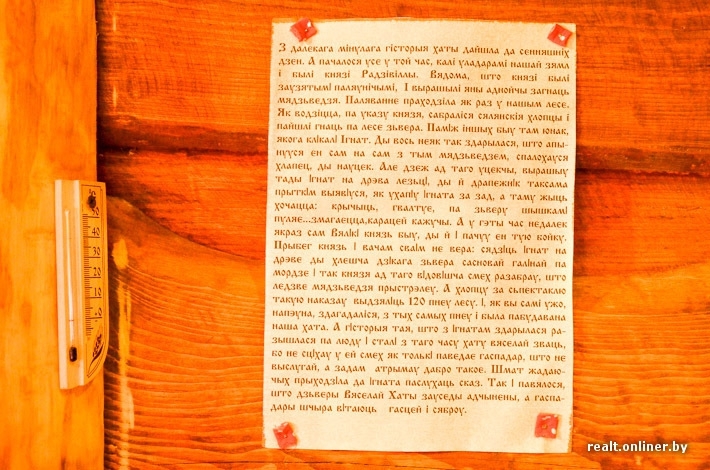 З далёкага мінулага гісторыя хаты дайшла да сённяшніх
дзён. А пачалося усе у той час, калі уладарамі нашай зямл
і былі князі Радзівіллы. Вядома, што князі былі
заузятымі паляунічымі, І вырашылі яны аднойчы загнаць
мядзьведзя. Паляванне праходзіла як раз у нашым лесе.
Як водзіцца, па указу князя, сабраліся сялянскія хлопцы і
пайшлі гнаць па лесе зьвера. Паміж іншых быу там юнак,
якога клікалі Ігнат. Ды вось неяк так здарылася, што апы-
нууся ен сам на сам з тым мядзьведзем, спалохауся
хлапец, ды науцек. Але дзеж ад таго уцекчы, вырашыу
тады Ігнат на дрэва лезьці, ды й драпежнік таксама
прыткім выявіуся, як ухапіу Ігната за зад, а таму жыць
хочацца: крычыць, гвалтуе, па зьверу шышкамі
пуляе...змагаецца,карацей кажучы. А у гэты час недалек
якраз сам Вялікі князь быу, ды й і пачуу ен тую бойку.
Прыбег князь і вачам сваім не вера: сядзіць Ігнат на
дрэве ды хлешча дзікага зьвера сасновай галінай па
мордзе і так князя ад таго відовішча смех разабрау, што
ледзве мядзьведзя прыстрэлеу. А хлопцу за сьпектаклю
такую наказау выдзяліць 120 пнеу лесу. І, як вы самі ужо,
напэуна, здагадаліся, з тых самых пнеу і была пабудавана
наша хата. А гісторыя тая, што з Ігнатам здарылася ра-
зышлася па люду і сталі з таго часу хату вяселай зваць,
бо не сціхау у ей смех як толькі паведае гаспадар, што не
выслугай, а задам атрымау дабро такое. Шмат жадаю-
чых прыходзіла да Ігната паслухаць сказ. Так і павялося,
што дзьверы Вяселай Хаты зауседы адчынены, а гаспа-
дары шчыра вітаюць гасцей і сяброу.
50
40
30
20
10
0
realt.onliner.by